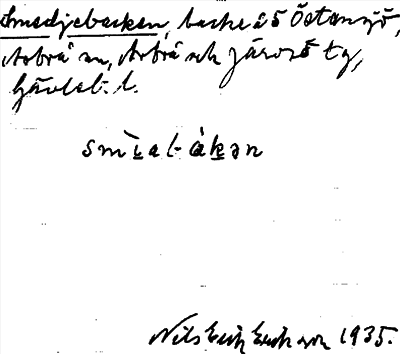 Smedjebacken, backe å ö Östansjö,
Torbrå sn, Torbrå och Järvsö tg,
Gävleb. l.
smìabàkən
Nils Erik Eriksson 1935.